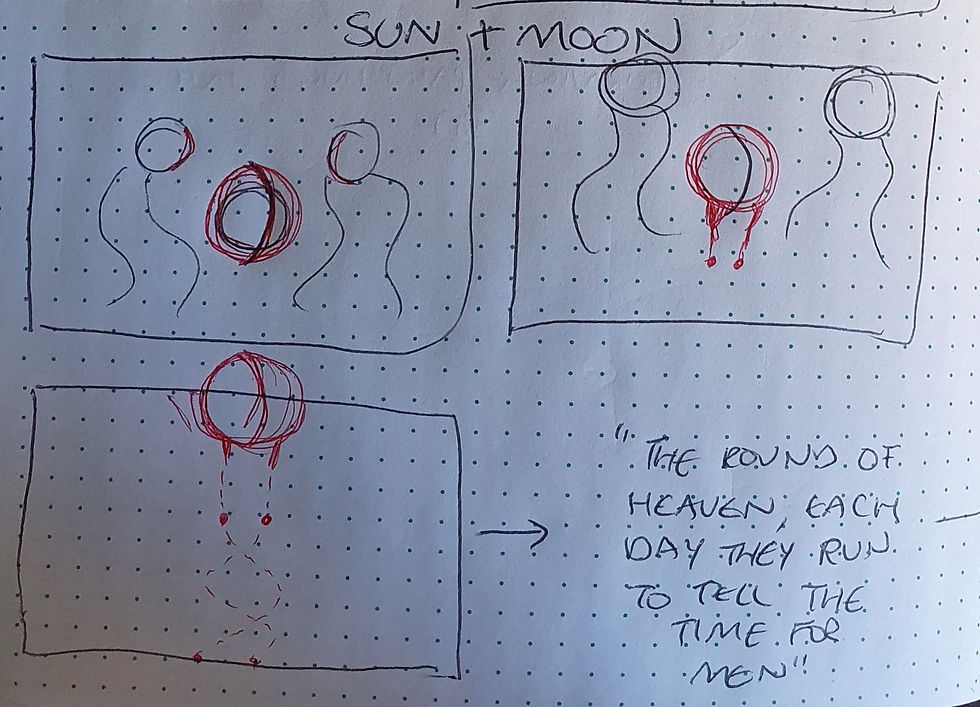 SUN + MOON
"THE ROUND OF
HEAVEN, EACH
DAY THEY RUN
TO TELL THE
TIME FOR
MEN"